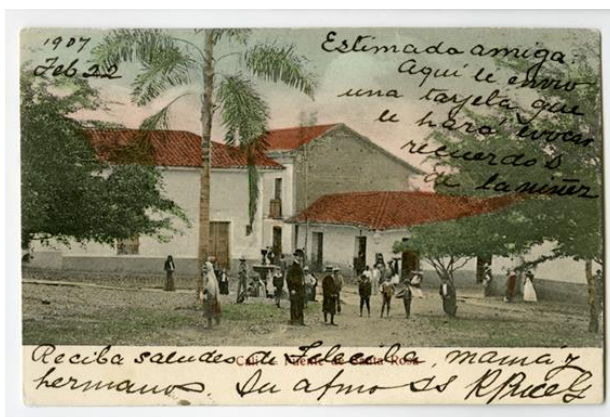 1907
Feb 22
Estimada amiga
Aquí le envio
una tarjeta que
le hará evocar
recuerdos
de la niñez
Cali - Fuente de Santa Rosa
Reciba saludes de Felecilia, mamá y
hermanos. Su afmo SS